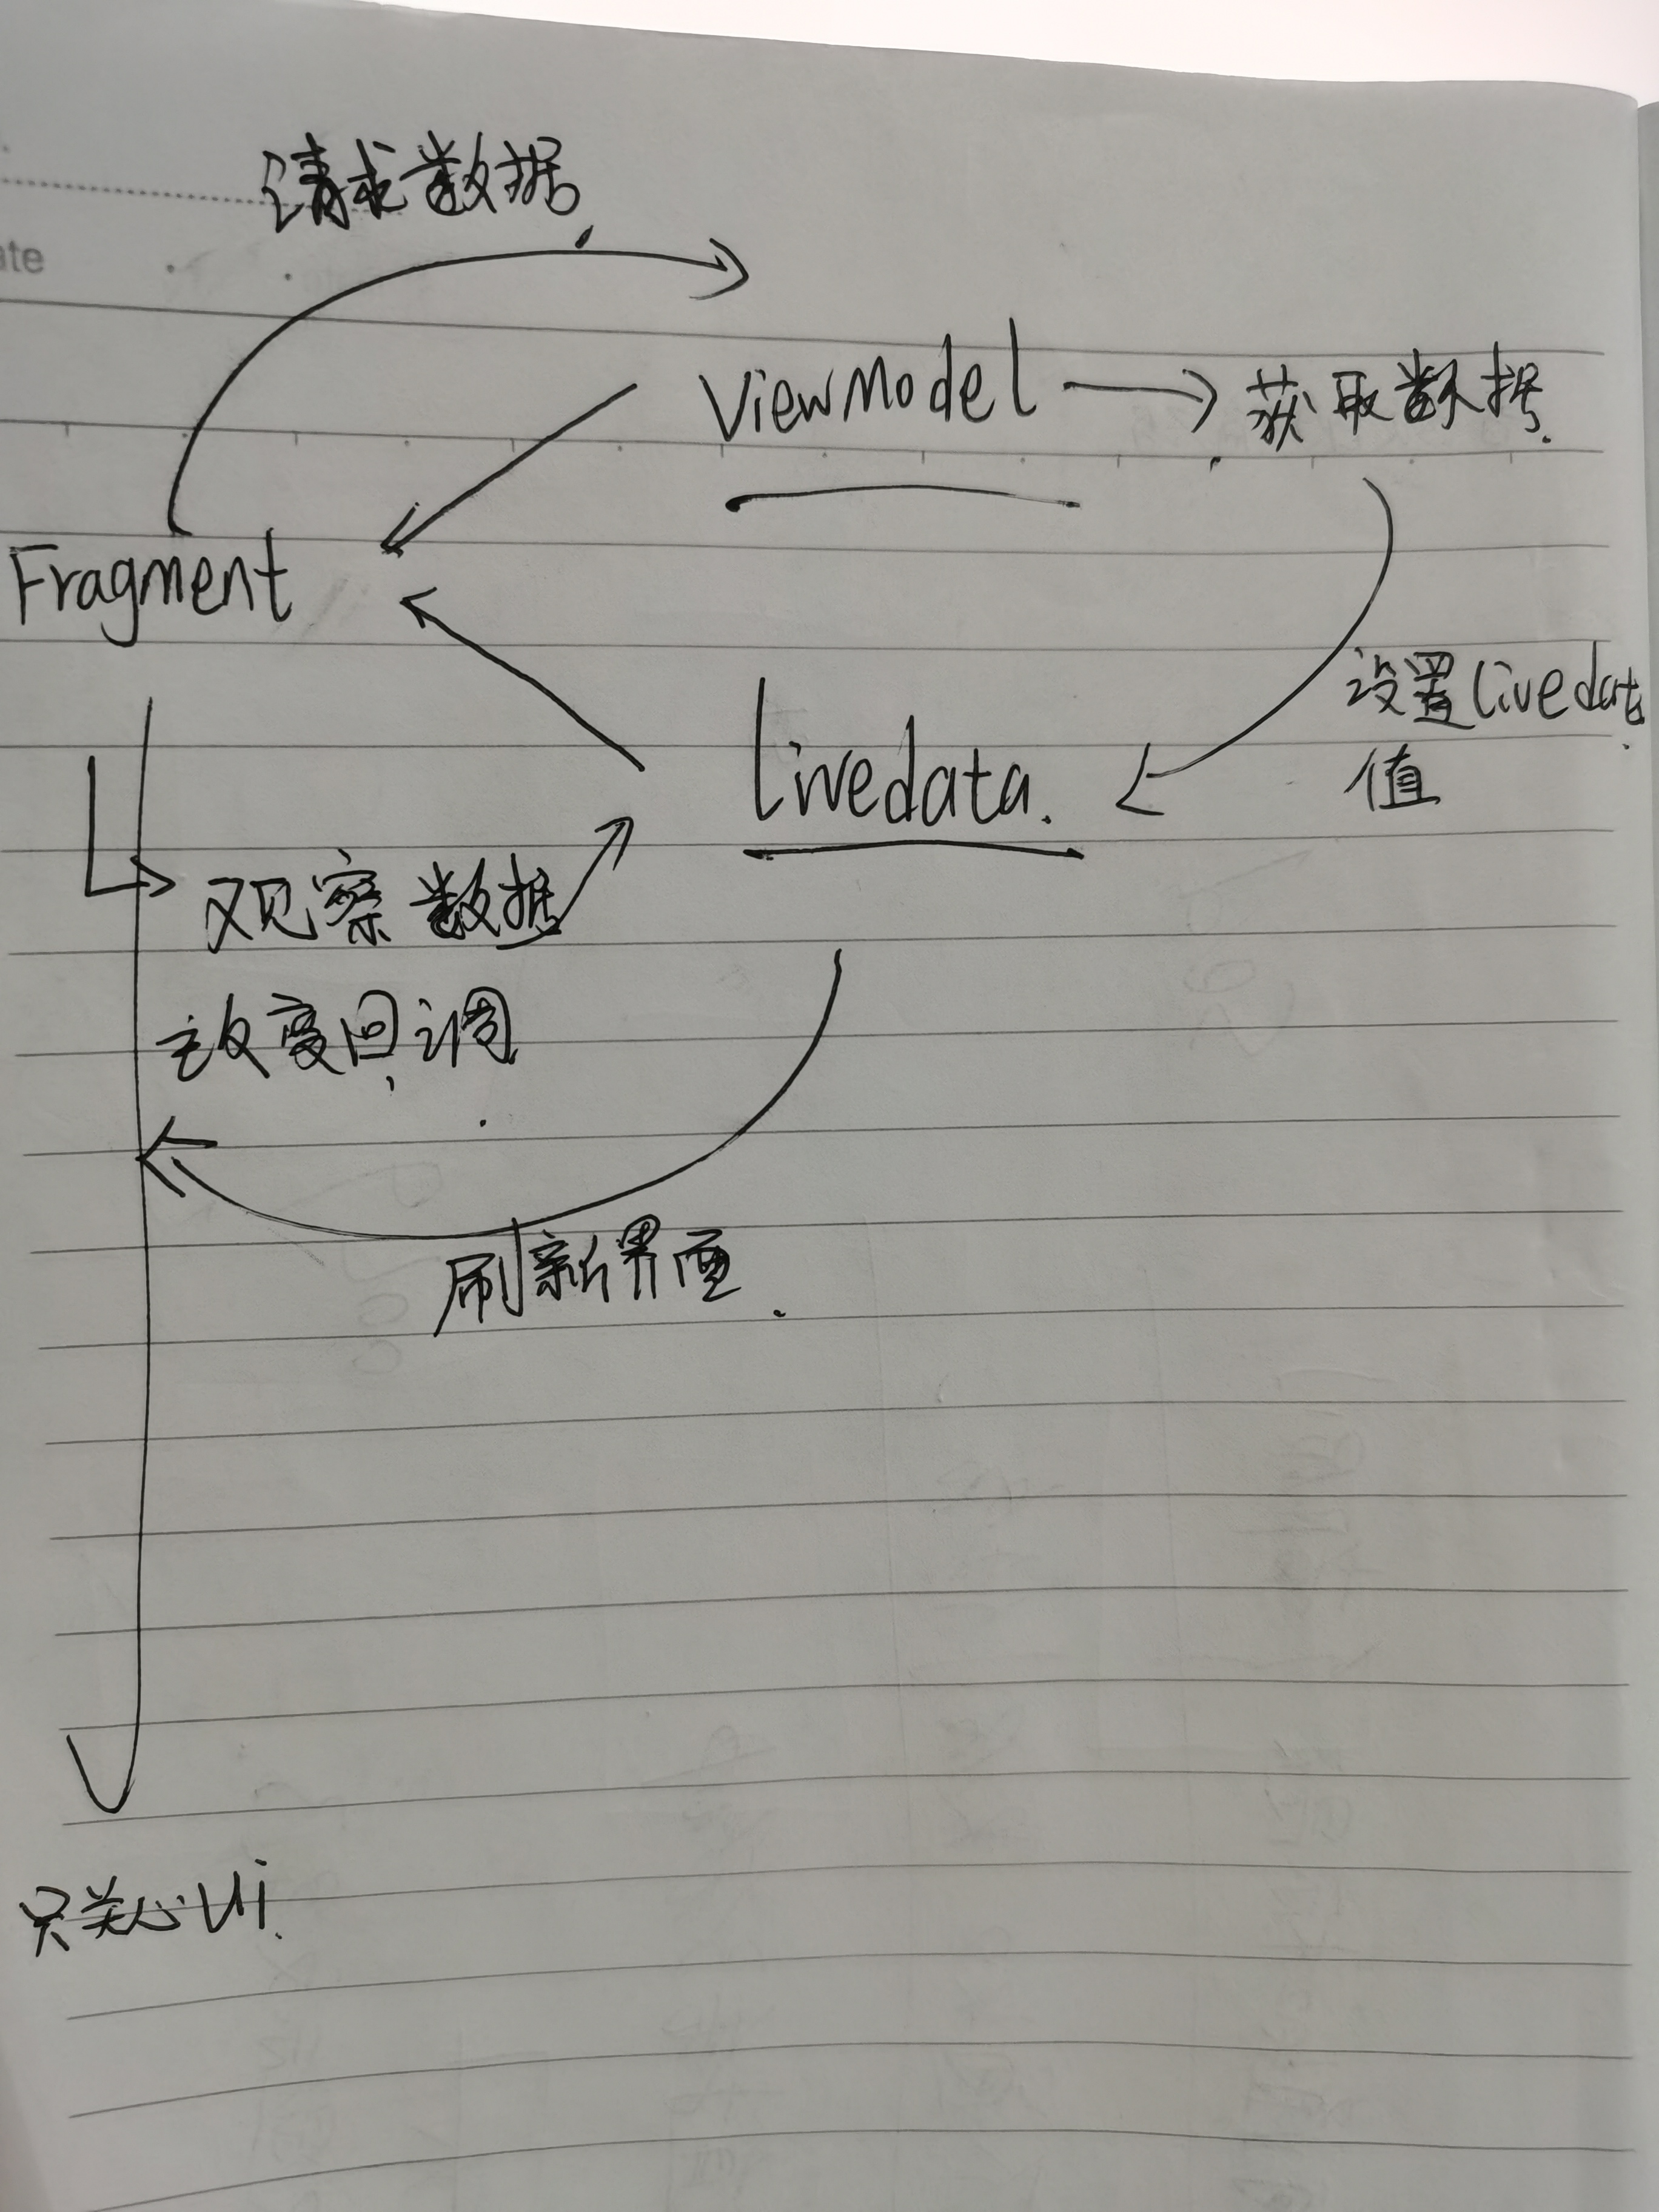 请求数据
ate
ViewModel
获取数据.
Fragment
设置livedata
值
livedata.
观察数据
改变回调
刷新界面.
只关心Ui.